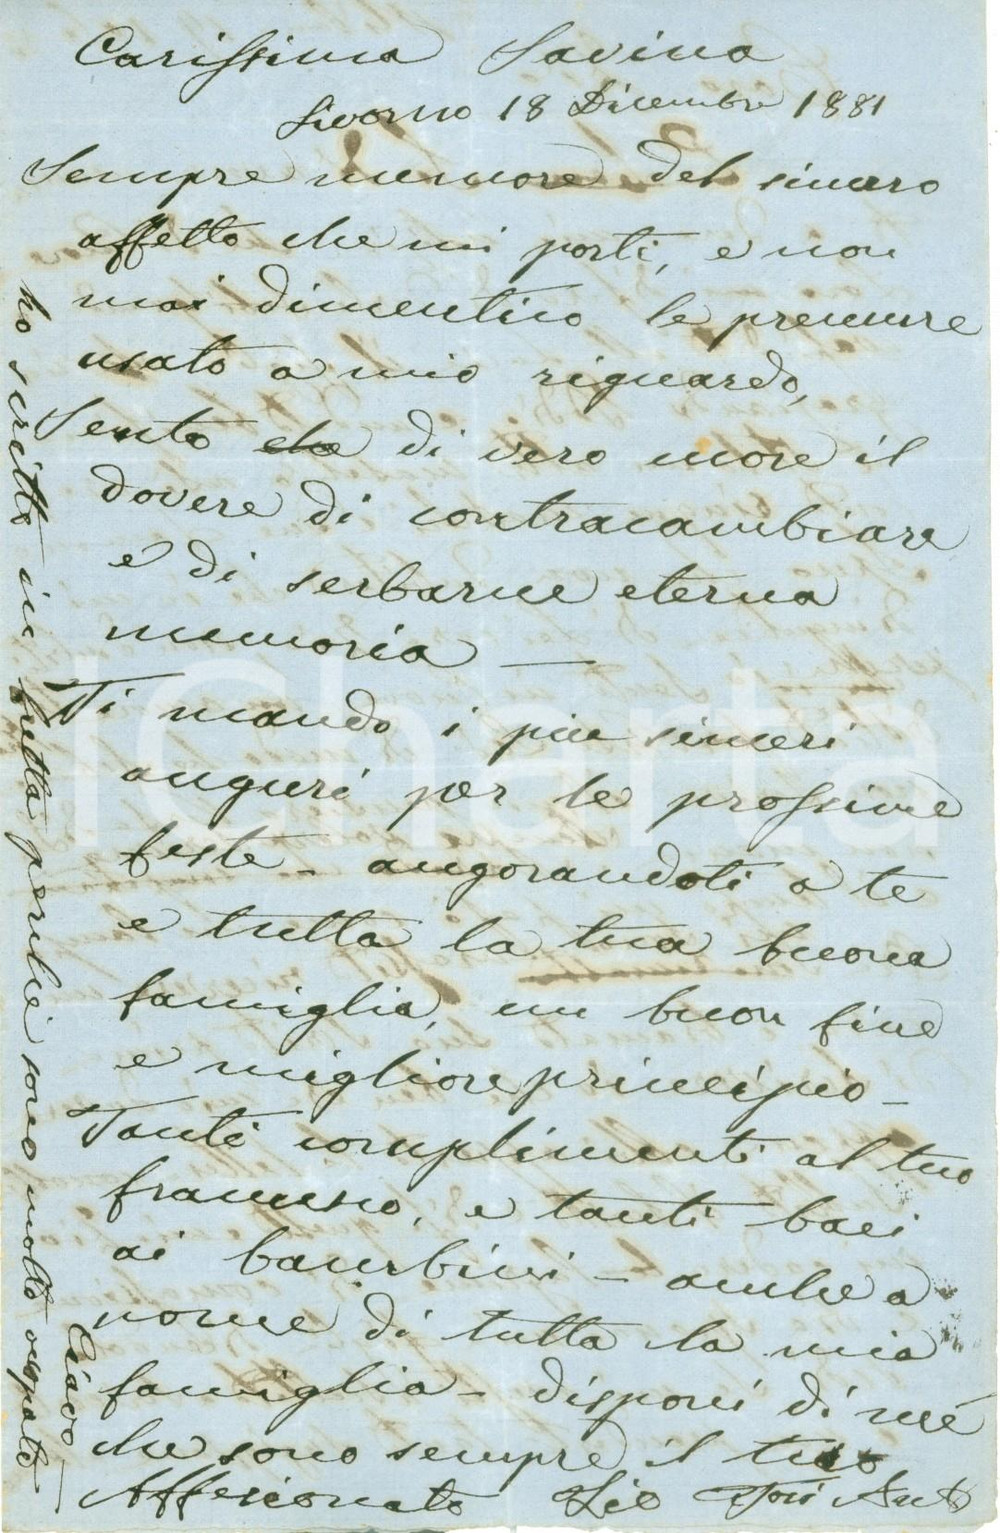 Carissima Savina
Livorno 18 Dicembre 1881
Sempre memore del sincero
affetto che mi porti, e non
mai dimentico le premure
usato a mio riguardo,
Sento che di vero more il
dovere di contracambiare
e di serbarne eterna
memoria —
Ti mando i più sinceri
auguri per le prossime
feste - augorandoti a te
e tutta la tua buona
famiglia, un buon fine
e migliore principio -
Tanti complimenti al tuo
francesco, e tanti baci
ai bambini - anche a
nome di tutta la mia
famiglia - disponi di me
che sono sempre il tuo
Affezionato Zio
ho scritto in fretta perché sono molto
Ciavo
ICharta